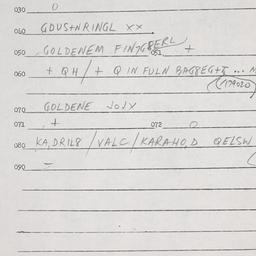 030 0
040 GDUS+NRINGL XX
050 GOLDENEM FINGGERL +
060 + QH / + Q IN FULN
(179020)
070 GOLDENE JOJX
071 + 072 0
080 KA,DRIL8 / VALC / KARAHO,D QELSW
090 =